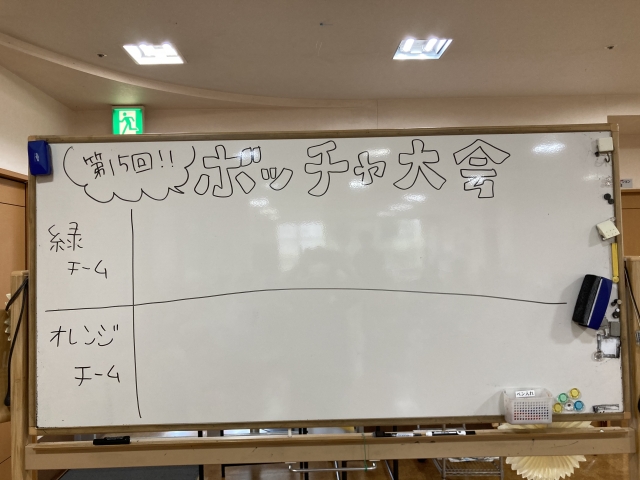 第15回!! ボッチャ大会
緑
チーム
オレンジ
チーム
ペン入れ